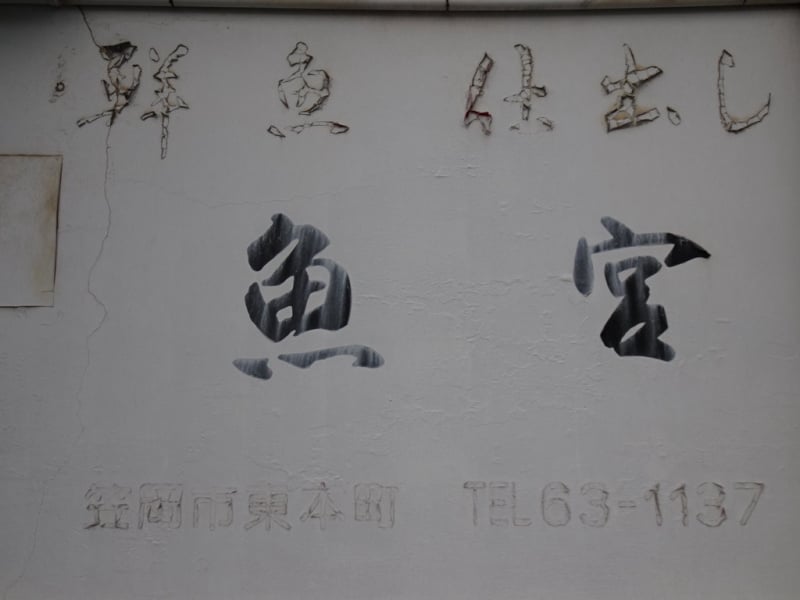 鮮魚 仕出し
魚宮
笠岡市東本町 TEL 63-1137